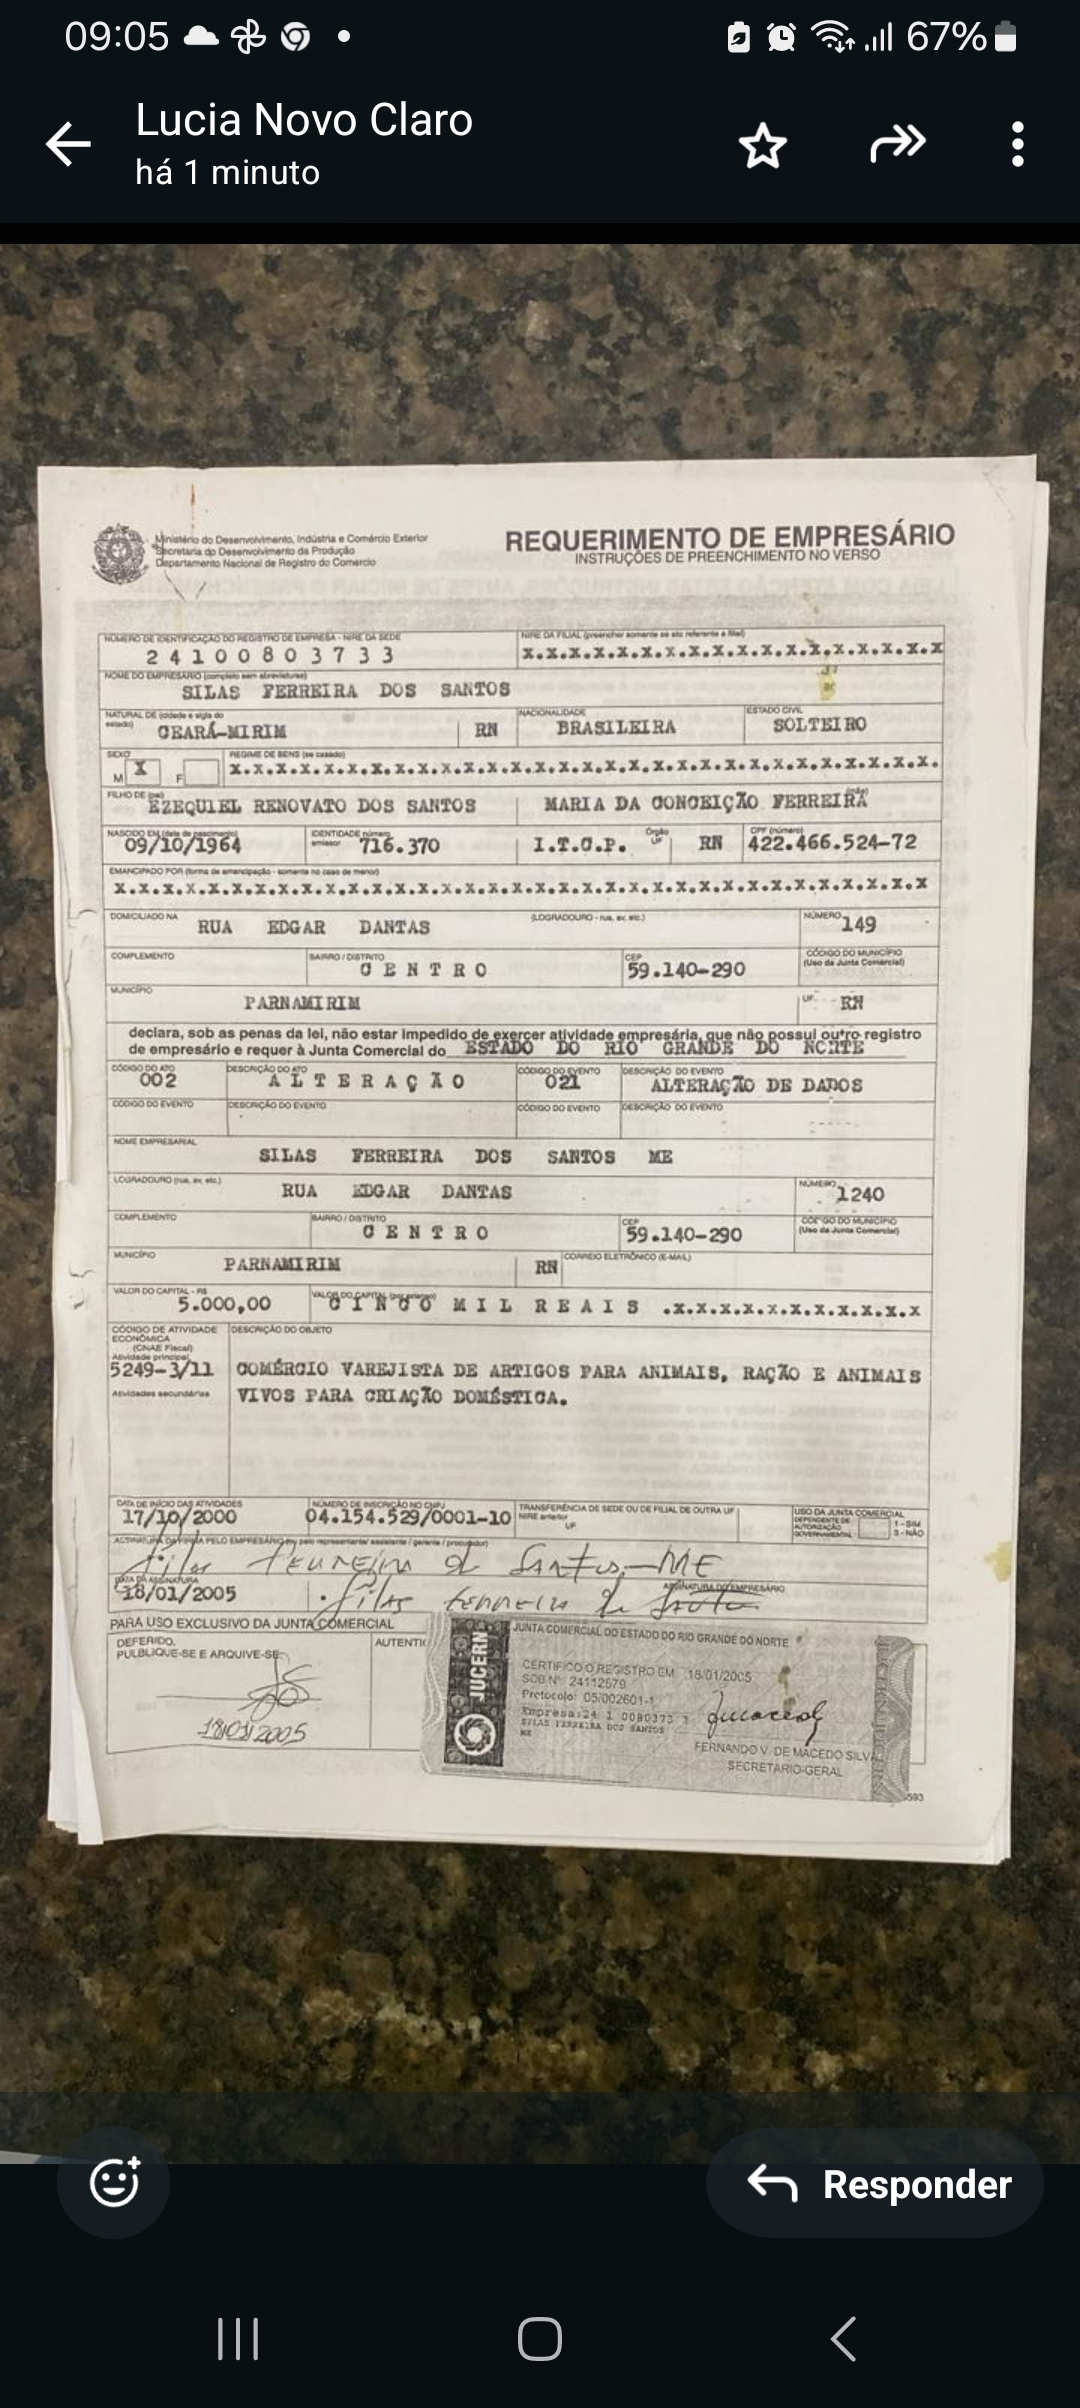 09:05
67%
Lucia Novo Claro
há 1 minuto
Ministério do Desenvolvimento, Indústria e Comércio Exterior
Secretaria do Desenvolvimento da Produção
Departamento Nacional de Registro do Comercio
REQUERIMENTO DE EMPRESÁRIO
INSTRUÇÕES DE PREENCHIMENTO NO VERSO
NÚMERO DE IDENTIFICAÇÃO DO REGISTRO DE EMPRESA - NIRE DA SEDE
NIRE DA FILIAL (preencher somente se ato referente a filial)
2 4 1 0 0 8 0 3 7 3 3
x.x.x.x.x.x.x.x.x.x.x.x.x.x.x.x.x.x
NOME DO EMPRESÁRIO (completo sem abreviaturas)
SILAS FERREIRA DOS SANTOS
NATURAL DE (cidade e sigla do estado)
NACIONALIDADE
ESTADO CIVIL
CEARÁ-MIRIM RN BRASILEIRA SOLTEIRO
SEXO
REGIME DE BENS (se casado)
M X F x.x.x.x.x.x.x.x.x.x.x.x.x.x.x.x.x.x.x.x.x.x.x.x.x.x.x.x.x.x.
FILHO DE (pai)
(mãe)
EZEQUIEL RENOVATO DOS SANTOS MARIA DA CONCEIÇÃO FERREIRA
NASCIDO EM (data de nascimento)
IDENTIDADE número
emissor
Órgão
UF
CPF (número)
09/10/1964 716.370 I.T.C.P. RN 422.466.524-72
EMANCIPADO POR (forma de emancipação - somente no caso de menor)
x.x.x.x.x.x.x.x.x.x.x.x.x.x.x.x.x.x.x.x.x.x.x.x.x.x.x.x.x.x.x.x.x.x.x
DOMICILIADO NA
(LOGRADOURO - rua, av, etc.)
NÚMERO
RUA EDGAR DANTAS 149
COMPLEMENTO
BAIRRO / DISTRITO
CEP
CÓDIGO DO MUNICÍPIO
(Uso da Junta Comercial)
C E N T R O 59.140-290
MUNICÍPIO
UF
PARNAMIRIM RN
declara, sob as penas da lei, não estar impedido de exercer atividade empresária, que não possui outro registro
de empresário e requer à Junta Comercial do ESTADO DO RIO GRANDE DO NORTE
CÓDIGO DO ATO
DESCRIÇÃO DO ATO
CÓDIGO DO EVENTO
DESCRIÇÃO DO EVENTO
002 A L T E R A Ç Ã O 021 ALTERAÇÃO DE DADOS
CÓDIGO DO EVENTO
DESCRIÇÃO DO EVENTO
CÓDIGO DO EVENTO
DESCRIÇÃO DO EVENTO
NOME EMPRESARIAL
SILAS FERREIRA DOS SANTOS ME
LOGRADOURO (rua, av, etc.)
NÚMERO
RUA EDGAR DANTAS 1240
COMPLEMENTO
BAIRRO / DISTRITO
CEP
CÓDIGO DO MUNICÍPIO
(Uso da Junta Comercial)
C E N T R O 59.140-290
MUNICÍPIO
CORREIO ELETRÔNICO (E-MAIL)
PARNAMIRIM RN
VALOR DO CAPITAL - R$
VALOR DO CAPITAL (por extenso)
5.000,00 C I N C O M I L R E A I S .x.x.x.x.x.x.x.x.x.x.x
CÓDIGO DE ATIVIDADE
ECONÔMICA
(CNAE Fiscal)
DESCRIÇÃO DO OBJETO
Atividade principal
5249-3/11 COMÉRCIO VAREJISTA DE ARTIGOS PARA ANIMAIS, RAÇÃO E ANIMAIS
Atividades secundárias
VIVOS PARA CRIAÇÃO DOMÉSTICA.
DATA DE INÍCIO DAS ATIVIDADES
NÚMERO DE INSCRIÇÃO NO CNPJ
TRANSFERÊNCIA DE SEDE OU DE FILIAL DE OUTRA UF
NIRE anterior
UF
USO DA JUNTA COMERCIAL
DEPENDENTE DE
AUTORIZAÇÃO
GOVERNAMENTAL
1 - SIM
3 - NÃO
17/10/2000 04.154.529/0001-10
ASSINATURA DA FIRMA PELO EMPRESÁRIO (ou pelo representante/ assistente / gerente / procurador)
Silas Ferreira d Santos-ME
DATA DA ASSINATURA
ASSINATURA DO EMPRESÁRIO
18/01/2005 Silas Ferreira d Santos
PARA USO EXCLUSIVO DA JUNTA COMERCIAL
DEFERIDO.
PULBLIQUE-SE E ARQUIVE-SE
AUTENTI
18/01/2005
JUCERN
JUNTA COMERCIAL DO ESTADO DO RIO GRANDE DO NORTE
CERTIFICO O REGISTRO EM 18/01/2005
SOB Nº 24112579
Protocolo: 05/002601-1
Empresa:24 1 0080373 3
SILAS FERREIRA DOS SANTOS
ME
FERNANDO V. DE MACEDO SILVA
SECRETÁRIO-GERAL
593
Responder